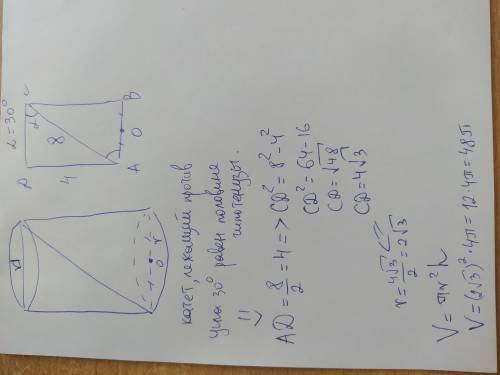 α=30°
D
C
α
8
4
A
O
B
d
O
r
катет, лежащий против
угла 30° равен половине
гипотенузы.
AD = 8/2 = 4 => CD² = 8² - 4²
CD² = 64 - 16
CD = √48
CD = 4√3
r = 4√3/2 = 2√3
V = πr²h
V = (2√3)² · 4π = 12 · 4π = 48π